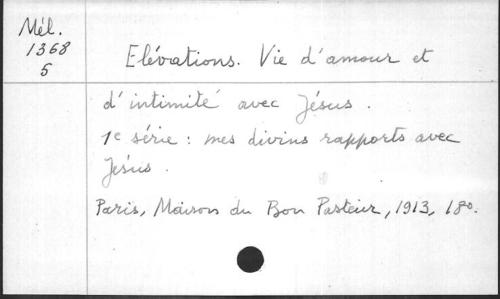 Mél.
1368
5
Elévations. Vie d'amour et
d'intimité avec Jésus.
1e série : mes divins rapports avec
Jésus.
Paris, Maison du Bon Pasteur, 1913, 18°.